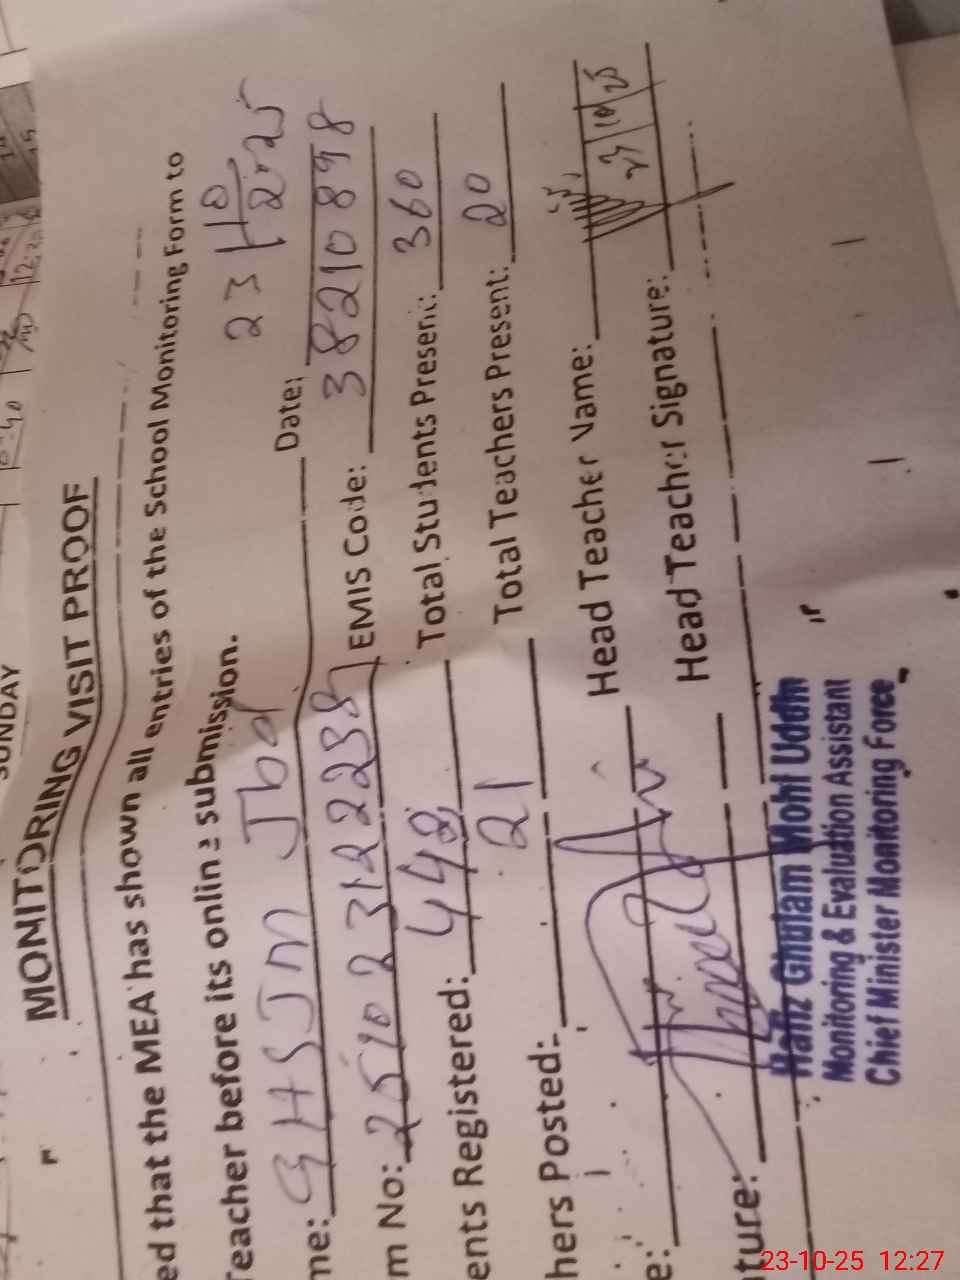 SUNDAY
MONITORING VISIT PROOF
ed that the MEA has shown all entries of the School Monitoring Form to
Teacher before its online submission.
me: GHSJM Jbd Date: 23/10/2025
m No: EMIS Code: 38210898
ents Registered: 448 Total Students Present: 360
hers Posted: 21 Total Teachers Present: 20
e: Head Teacher Name:
ture: Head Teacher Signature: 23/10/25
Hafiz Ghulam Mohi Uddin
Monitoring & Evaluation Assistant
Chief Minister Monitoring Force
23-10-25 12:27